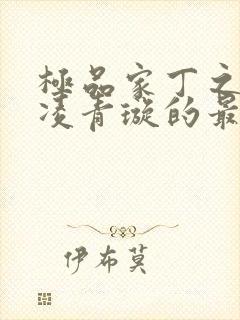 極品家丁之
凌青璇的最
伊布莫